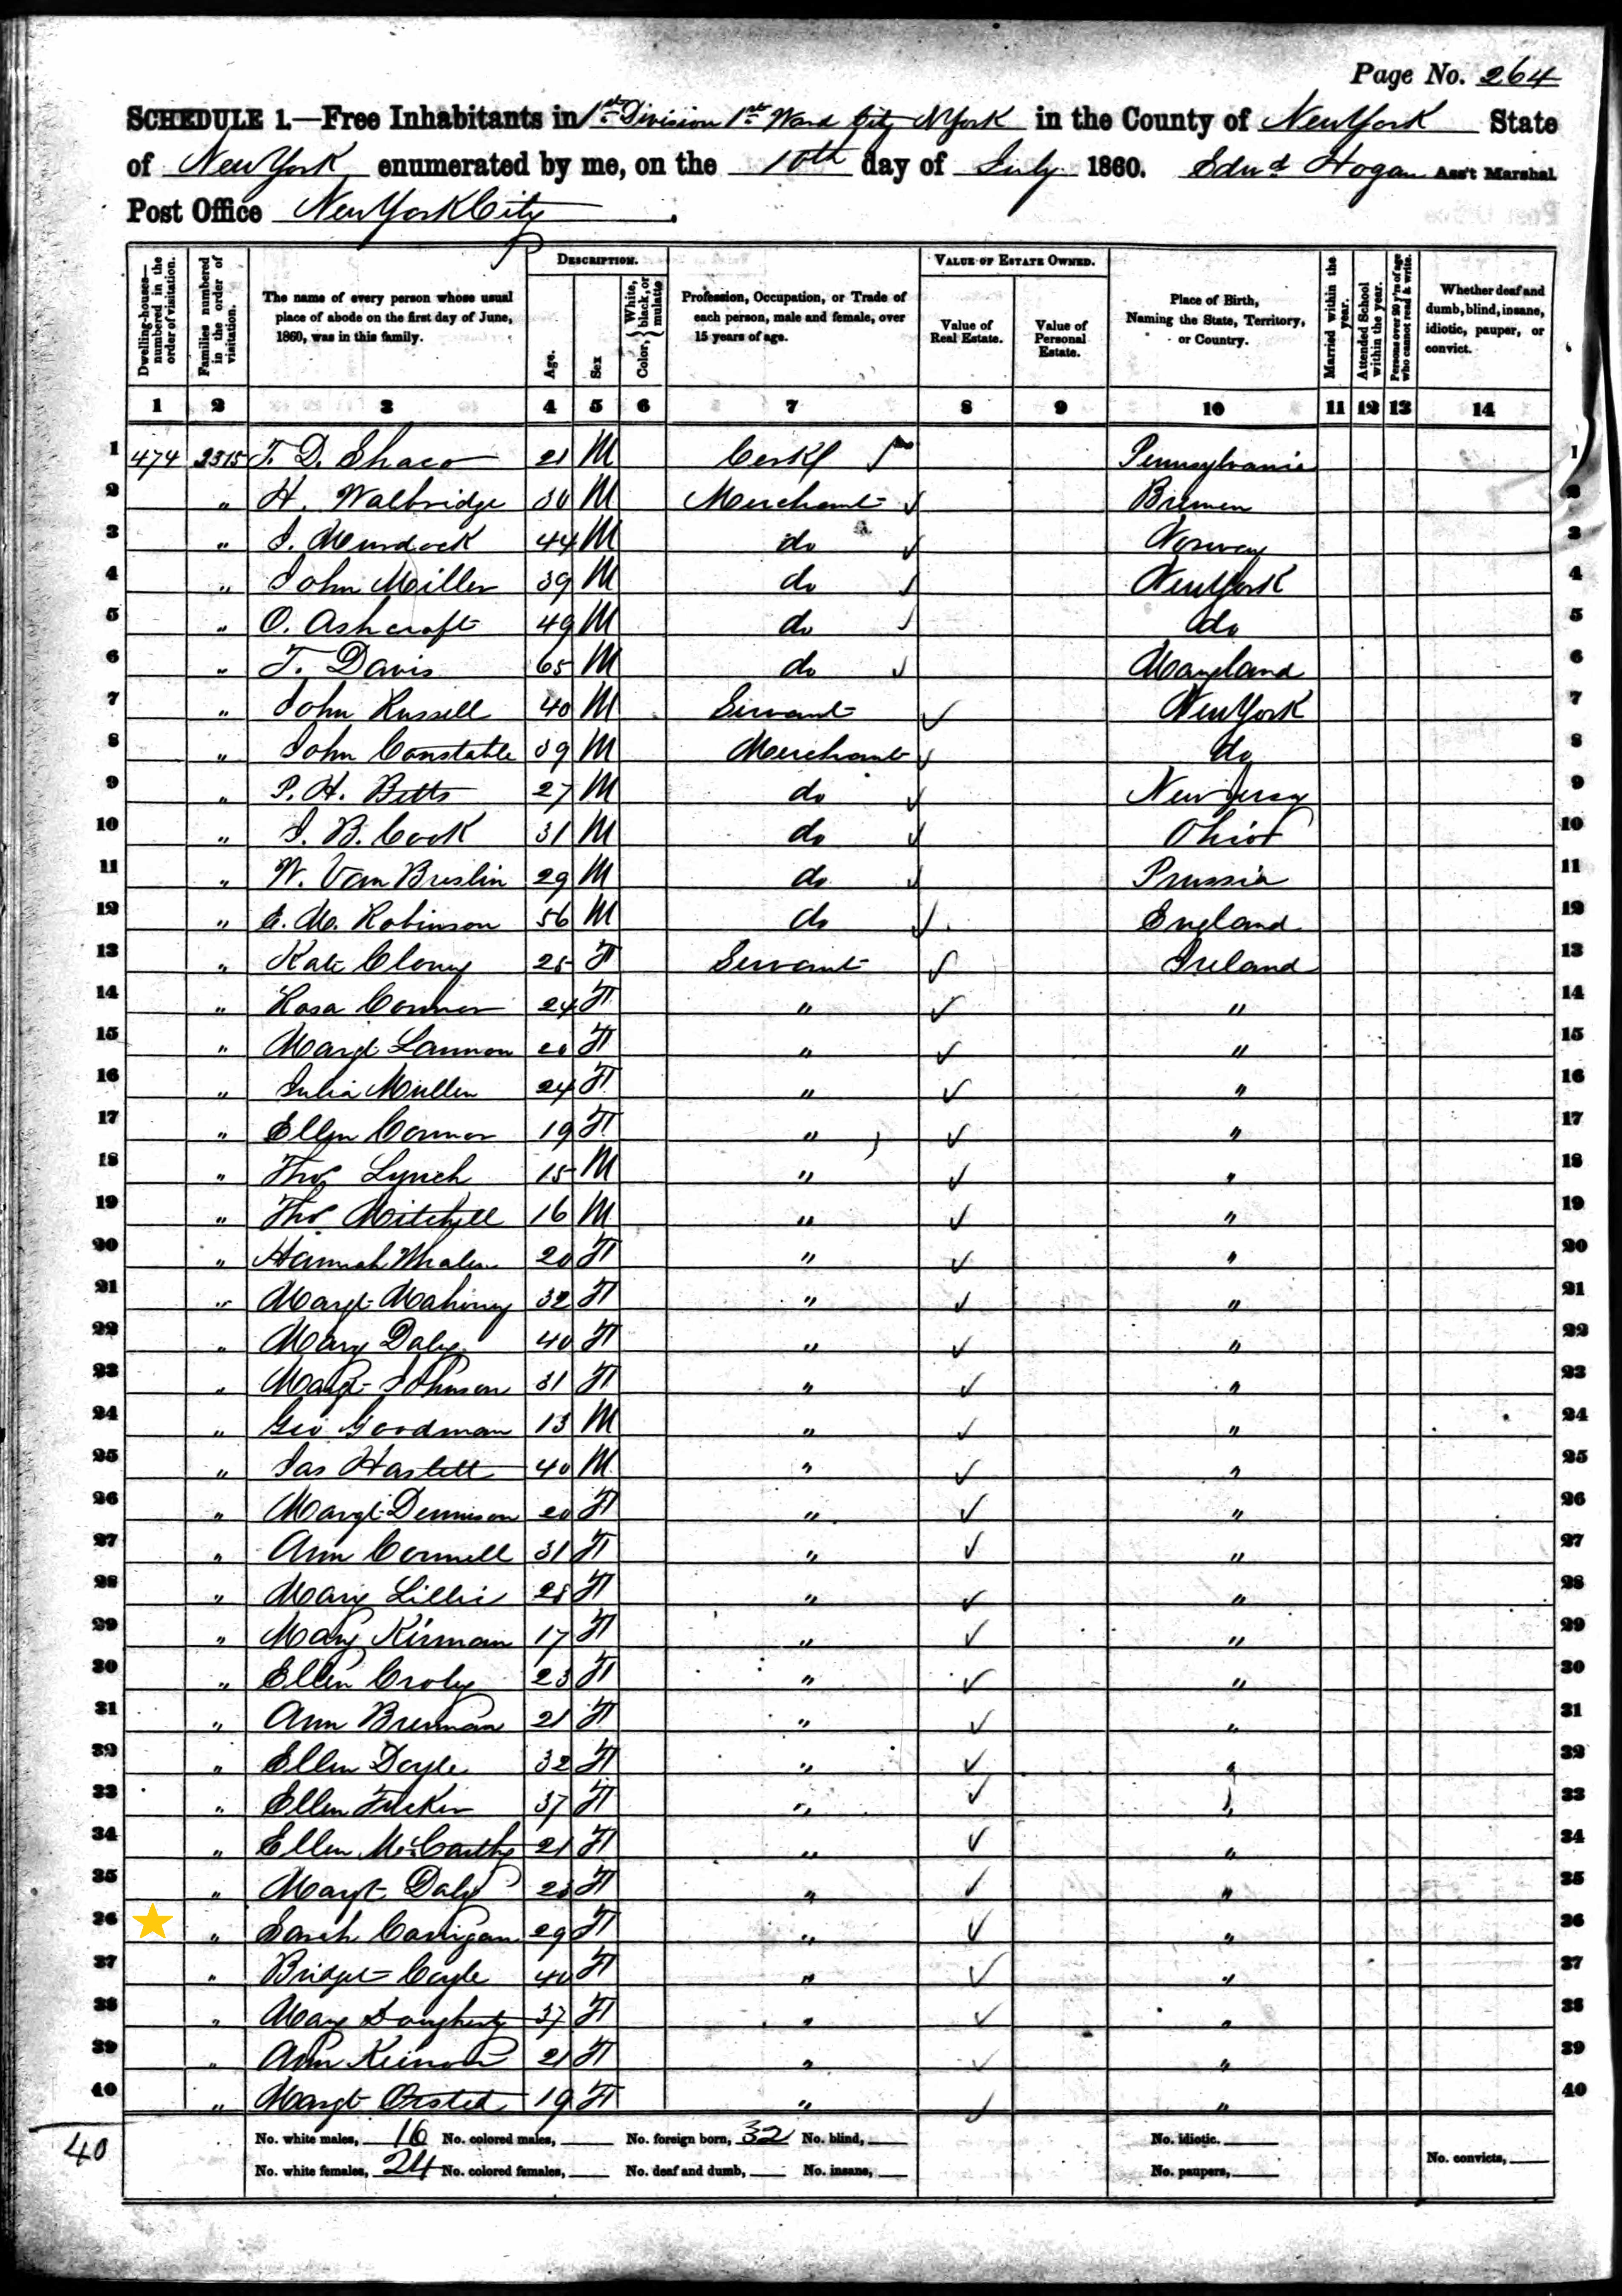 Page No. 264
SCHEDULE 1.—Free Inhabitants in 1st Division 1st Ward City NYork in the County of New York State
of New York enumerated by me, on the 10th day of July 1860. Edwd Hogan Ass't Marshal
Post Office New York City.
Dwelling-houses—numbered in the order of visitation.
Families numbered in the order of visitation.
The name of every person whose usual place of abode on the first day of June, 1860, was in this family.
DESCRIPTION.
Age.
Sex
Color, White, black, or mulatto
Profession, Occupation, or Trade of each person, male and female, over 15 years of age.
VALUE OF ESTATE OWNED.
Value of Real Estate.
Value of Personal Estate.
Place of Birth, Naming the State, Territory, or Country.
Married within the year.
Attended School within the year.
Persons over 20 y'rs of age who cannot read & write.
Whether deaf and dumb, blind, insane, idiotic, pauper, or convict.
1 2 3 4 5 6 7 8 9 10 11 12 13 14
1 474 2315 T. D. 21 M Pennsylvania 1
2 " H. Walbridge 30 M Merchant Bremen 2
3 " J. Murdock 44 M do Norway 3
4 " John Miller 39 M do New York 4
5 " O. Ashcroft 49 M do do 5
6 " T. Davis 65 M do Maryland 6
7 " John Russell 40 M Servant New York 7
8 " John Constable 39 M Merchant do 8
9 " P. H. Betts 27 M do New Jersey 9
10 " J. B. Cook 31 M do Ohio 10
11 " W. Van Breslin 29 M do Prussia 11
12 " E. M. Robinson 56 M do England 12
13 " Kate Clony 25 F Servant Ireland 13
14 " Rosa Connor 24 F " " 14
15 " Margt Lannon 20 F " " 15
16 " Julia Mullen 24 F " " 16
17 " Ellen Connor 19 F " " 17
18 " Thos Lynch 15 M " " 18
19 " Thos Mitchell 16 M " " 19
20 " Hannah Whalen 20 F " " 20
21 " Margt Mahoney 32 F " " 21
22 " Mary Daly 40 F " " 22
23 " Margt Johnson 31 F " " 23
24 " Geo Goodman 13 M " " 24
25 " Jas Haslett 40 M " " 25
26 " Margt Dennison 20 F " " 26
27 " Ann Connell 31 F " " 27
28 " Mary Lillis 28 F " " 28
29 " Mary Kirnan 17 F " " 29
30 " Ellen Croly 23 F " " 30
31 " Ann Brennan 21 F " " 31
32 " Ellen Doyle 32 F " " 32
33 " Ellen Tucker 37 F " " 33
34 " Ellen McCarthy 21 F " " 34
35 " Margt Daly 23 F " " 35
36 " Sarah Carrigan 29 F " " 36
37 " Bridget Coyle 40 F " " 37
38 " Mary Dougherty 37 F " " 38
39 " Ann 21 F " " 39
40 " Margt Orsted 19 F " " 40
40
No. white males, 16 No. colored males, No. foreign born, 32 No. blind, No. idiotic.
No. white females, 24 No. colored females, No. deaf and dumb, No. insane, No. paupers, No. convicts,